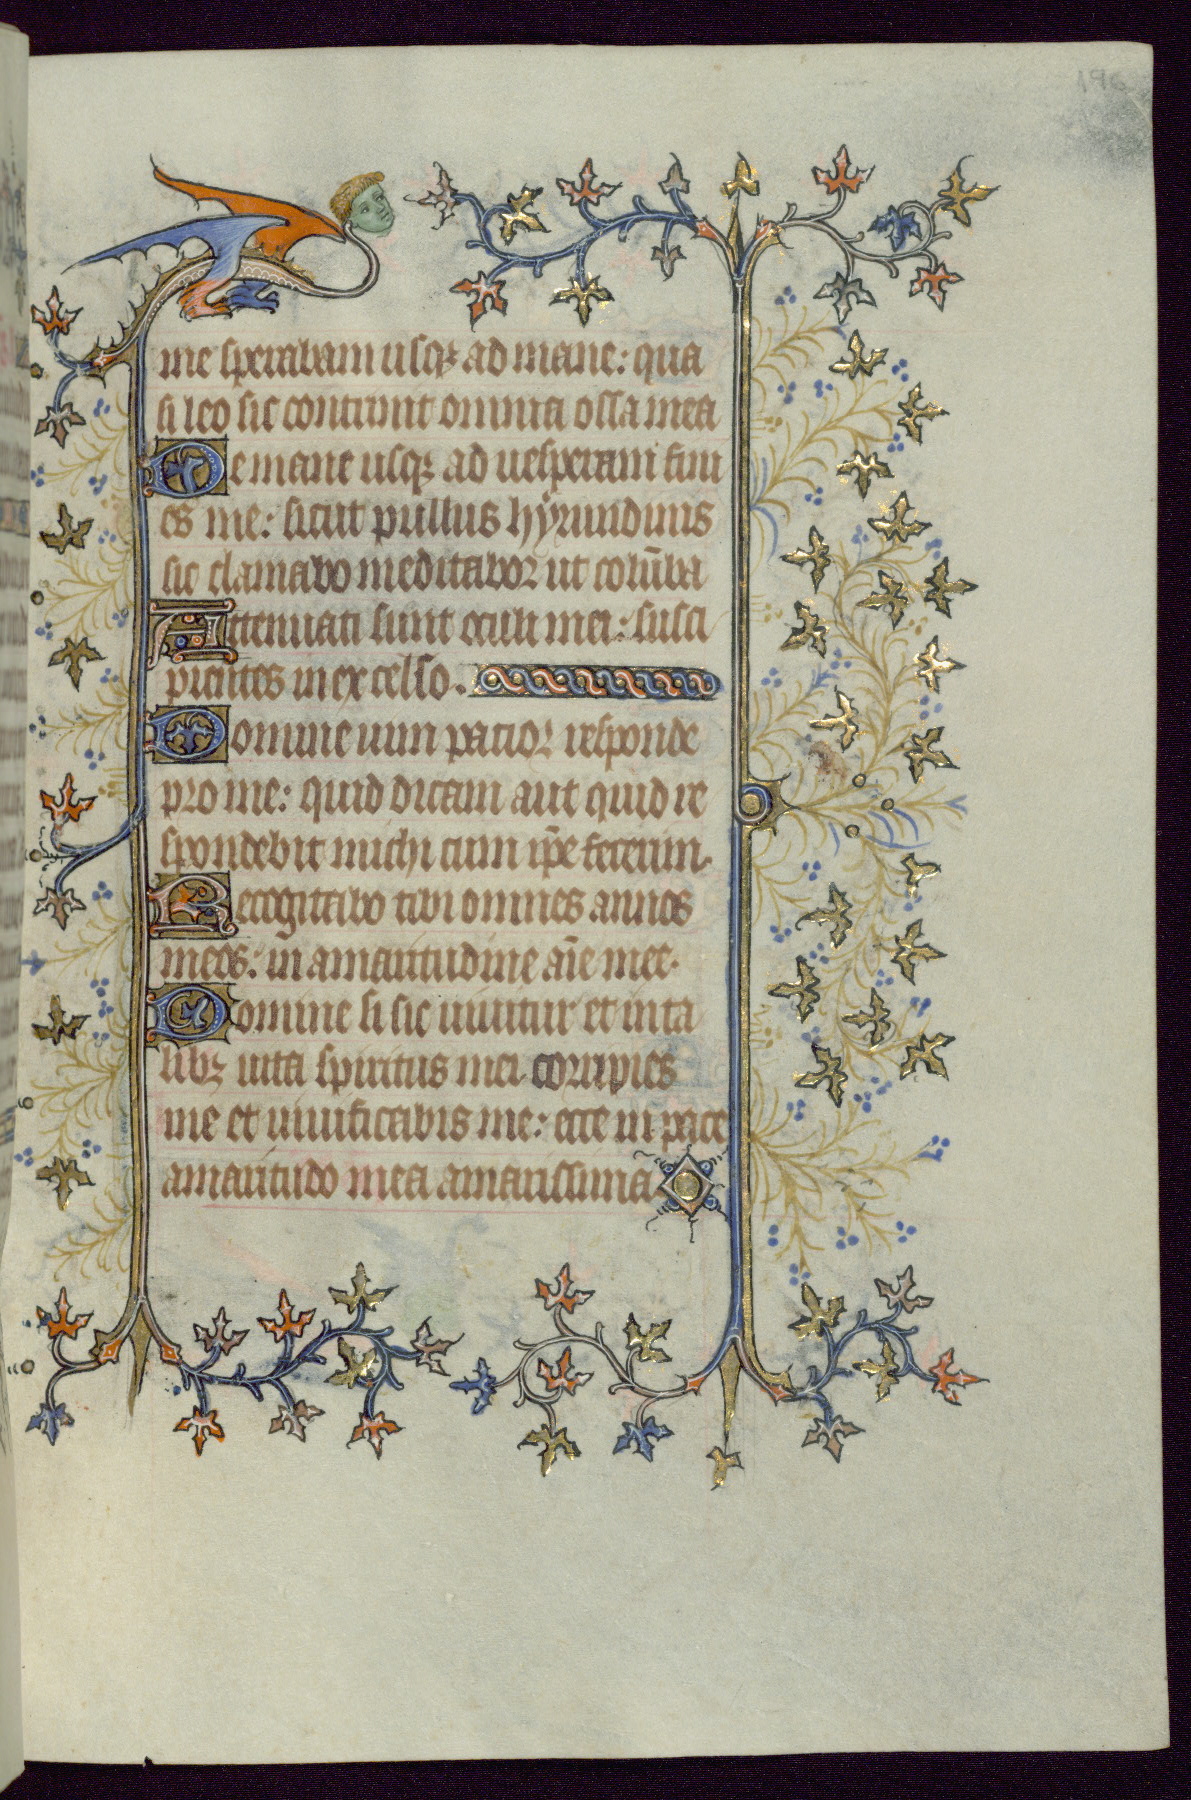 196
me sperabam usqꝫ ad mane: qua
si leo sic contrivit omnia ossa mea
De mane usqꝫ ad uesperam fini
es me: sicut pullus hyrundinis
sic clamabo meditabor ut colūba
Attenuati sunt oculi mei: susci
pientes in excelso.
Domine uim patior responde
pro me: quid dicam aut quid re
spondebit michi cum ip̄e fecerim.
Recogitabo tibi omnes annos
meos: in amaritudine aīe mee.
Domine si sic uiuitur et in ta
libꝫ uita spiritus mei corripies
me et uiuificabis me: ecce in pace
amaritudo mea amarissima